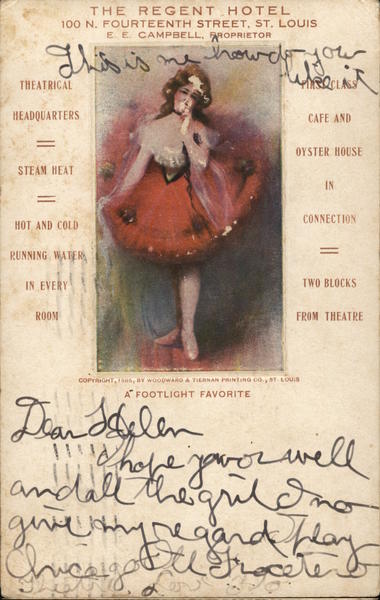 THE REGENT HOTEL
100 N. FOURTEENTH STREET, ST. LOUIS
E. E. CAMPBELL, PROPRIETOR
This is me how do you
like it
THEATRICAL
HEADQUARTERS
STEAM HEAT
HOT AND COLD
RUNNING WATER
IN EVERY
ROOM
FIRST CLASS
CAFE AND
OYSTER HOUSE
IN
CONNECTION
TWO BLOCKS
FROM THEATRE
COPYRIGHT, BY WOODWARD & TIERNAN PRINTING CO., ST. LOUIS
A FOOTLIGHT FAVORITE
Dear Helen
I hope you or well
and all the girl I no
give my regard I play
Chicago Ill